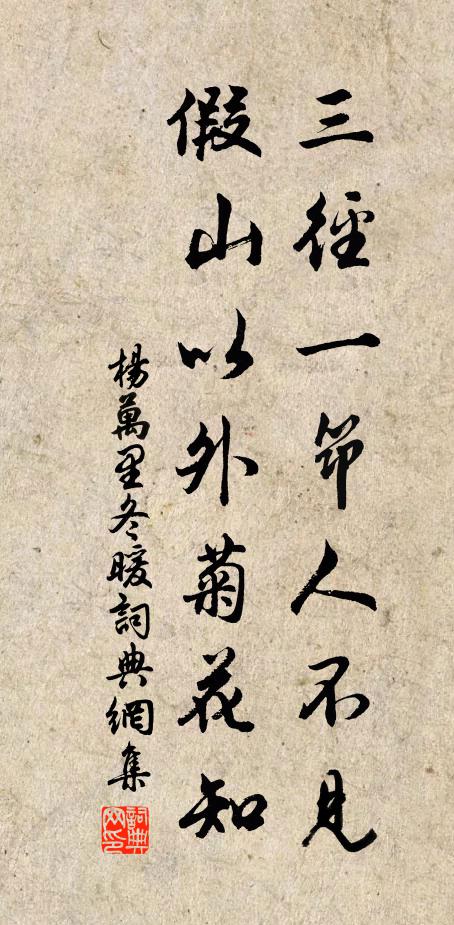 三徑一筇人不見
假山以外菊花知
楊萬里冬暖詞典網集
詞典网印